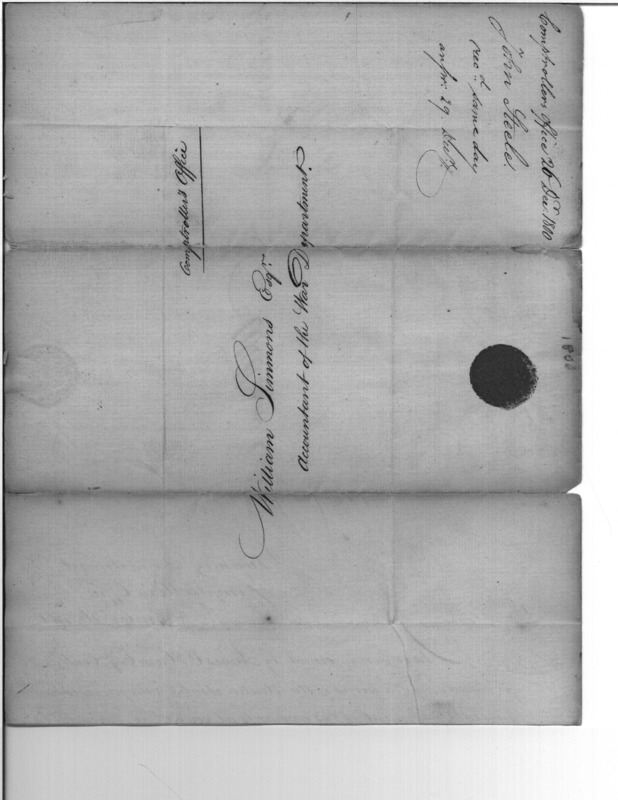 Comptrollers Office 26 Decr. 1800
Jno. Steele
recd. same day
ansr. 29 Decr.
Comptroller's Office
William Simmons Esqr.
Accountant of the War Department
1800